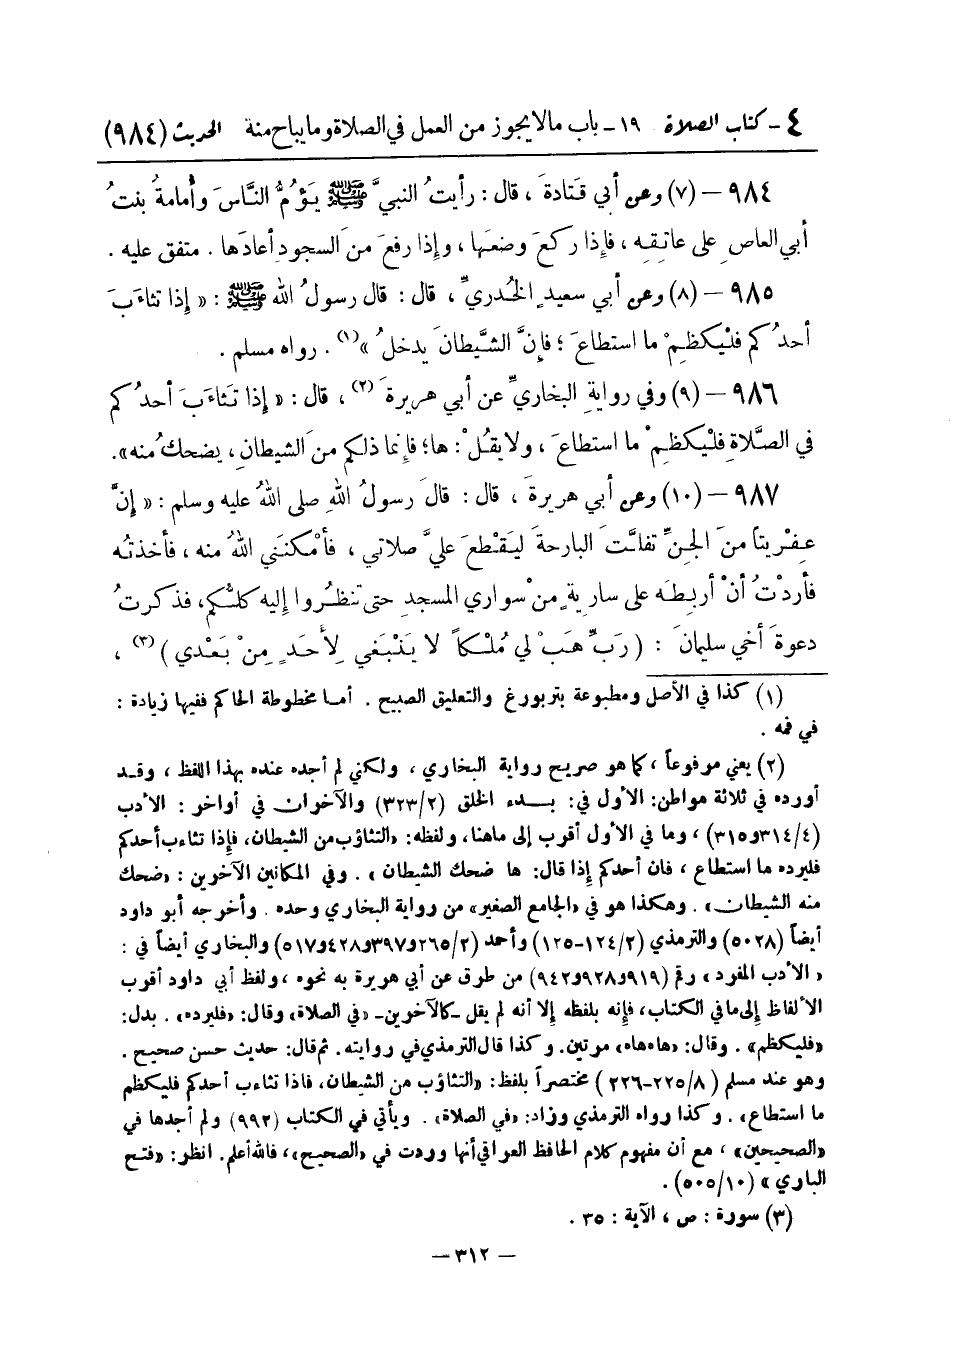 ٤ - كتاب الصلاة ١٩ - باب مالا يجوز من العمل في الصلاة وما يباح منة الحديث (٩٨٤)
٩٨٤ - (٧) وعن أبي قتادةَ ، قال : رأيتُ النبيَّ ﷺ يَؤُمُّ النَّاسَ وأُمامةُ بنتُ
أبي العاصِ على عاتِقِهِ ، فإذا ركعَ وضعَها ، وإذا رفعَ منَ السجودِ أعادَها . متفق عليه .
٩٨٥ - (٨) وعن أبي سعيدٍ الخُدريِّ ، قال : قال رسولُ الله ﷺ : « إذا تثاءَبَ
أحدُكم فلْيَكظِمْ ما استطاعَ ؛ فإنَّ الشَّيطانَ يدخلُ »(١) . رواه مسلم .
٩٨٦ - (٩) وفي روايةِ البخاريِّ عن أبي هريرةَ (٢) ، قال : « إذا تَثاءَبَ أحدُكم
في الصَّلاةِ فلْيكظِمْ ما استطاعَ ، ولا يقُلْ : ها؛ فإنما ذلكم منَ الشيطانِ ، يضحكُ منه ».
٩٨٧ - (١٠) وعن أبي هريرةَ ، قال : قالَ رسولُ اللهِ صلى اللهُ عليه وسلم : « إنَّ
عِفْريتاً منَ الجنِّ تفلَّتَ البارحةَ ليَقْطعَ عليَّ صلاتي ، فأمْكنَني اللهُ منه ، فأخذتُه
فأردْتُ أنْ أربِطَه على ساريةٍ منْ سواري المسجدِ حتى تنظُروا إليه كلُّكم ، فذكرتُ
دعوةَ أخي سليمانَ : ( رَبِّ هَبْ لي مُلْكاً لا يَنْبَغي لِأَحَدٍ مِنْ بَعْدي ) (٣) ،
(١) كذا في الأصل ومطبوعة بتربورغ والتعليق الصبيح . أما مخطوطة الحاكم ففيها زيادة :
في فمه .
(٢) يعني مرفوعاً ، كما هو صريح رواية البخاري ، ولكني لم أجده عنده بهذا اللفظ ، وقد
أورده في ثلاثة مواطن: الأول في: بدء الخلق (٣٢٣/٢) والآخران في أواخر : الأدب
(٣١٤/٤و٣١٥) ، وما في الأول أقرب إلى ماهنا، ولفظه: «التثاؤب من الشيطان، فإذا تثاءب أحدكم
فليرده ما استطاع ، فان أحدكم إذا قال: ها ضحك الشيطان » . وفي المكانين الآخرين : «ضحك
منه الشيطان» . وهكذا هو في «الجامع الصغير» من رواية البخاري وحده . وأخرجه أبو داود
أيضاً (٥٠٢٨) والترمذي (١٢٤/٢-١٢٥) وأحمد (٢٦٥/٢و٣٩٧و٤٢٨و٥١٧) والبخاري أيضاً في :
«الأدب المفرد» رقم (٩١٩و٩٢٨و٩٤٢) من طرق عن أبي هريرة به نحوه ، ولفظ أبي داود أقرب
الألفاظ إلى ما في الكتاب، فإنه بلفظه إلا أنه لم يقل -كالآخرين- «في الصلاة» وقال: «فليرده» . بدل:
«فليكظم» . وقال: «هاه هاه» مرتين. وكذا قال الترمذي في روايته. ثم قال: حديث حسن صحيح .
وهو عند مسلم (٢٢٥/٨-٢٢٦) مختصراً بلفظ: «التثاؤب من الشيطان، فاذا تثاءب أحدكم فليكظم
ما استطاع» . وكذا رواه الترمذي وزاد: «في الصلاة» . ويأتي في الكتاب (٩٩٢) ولم أجدها في
«الصحيحين» ، مع أن مفهوم كلام الحافظ العراقي أنها وردت في «الصحيح»، فالله أعلم. انظر: «فتح
الباري » (٥٠٥/١٠) .
(٣) سورة : ص ، الآية : ٣٥ .
- ٣١٢ -